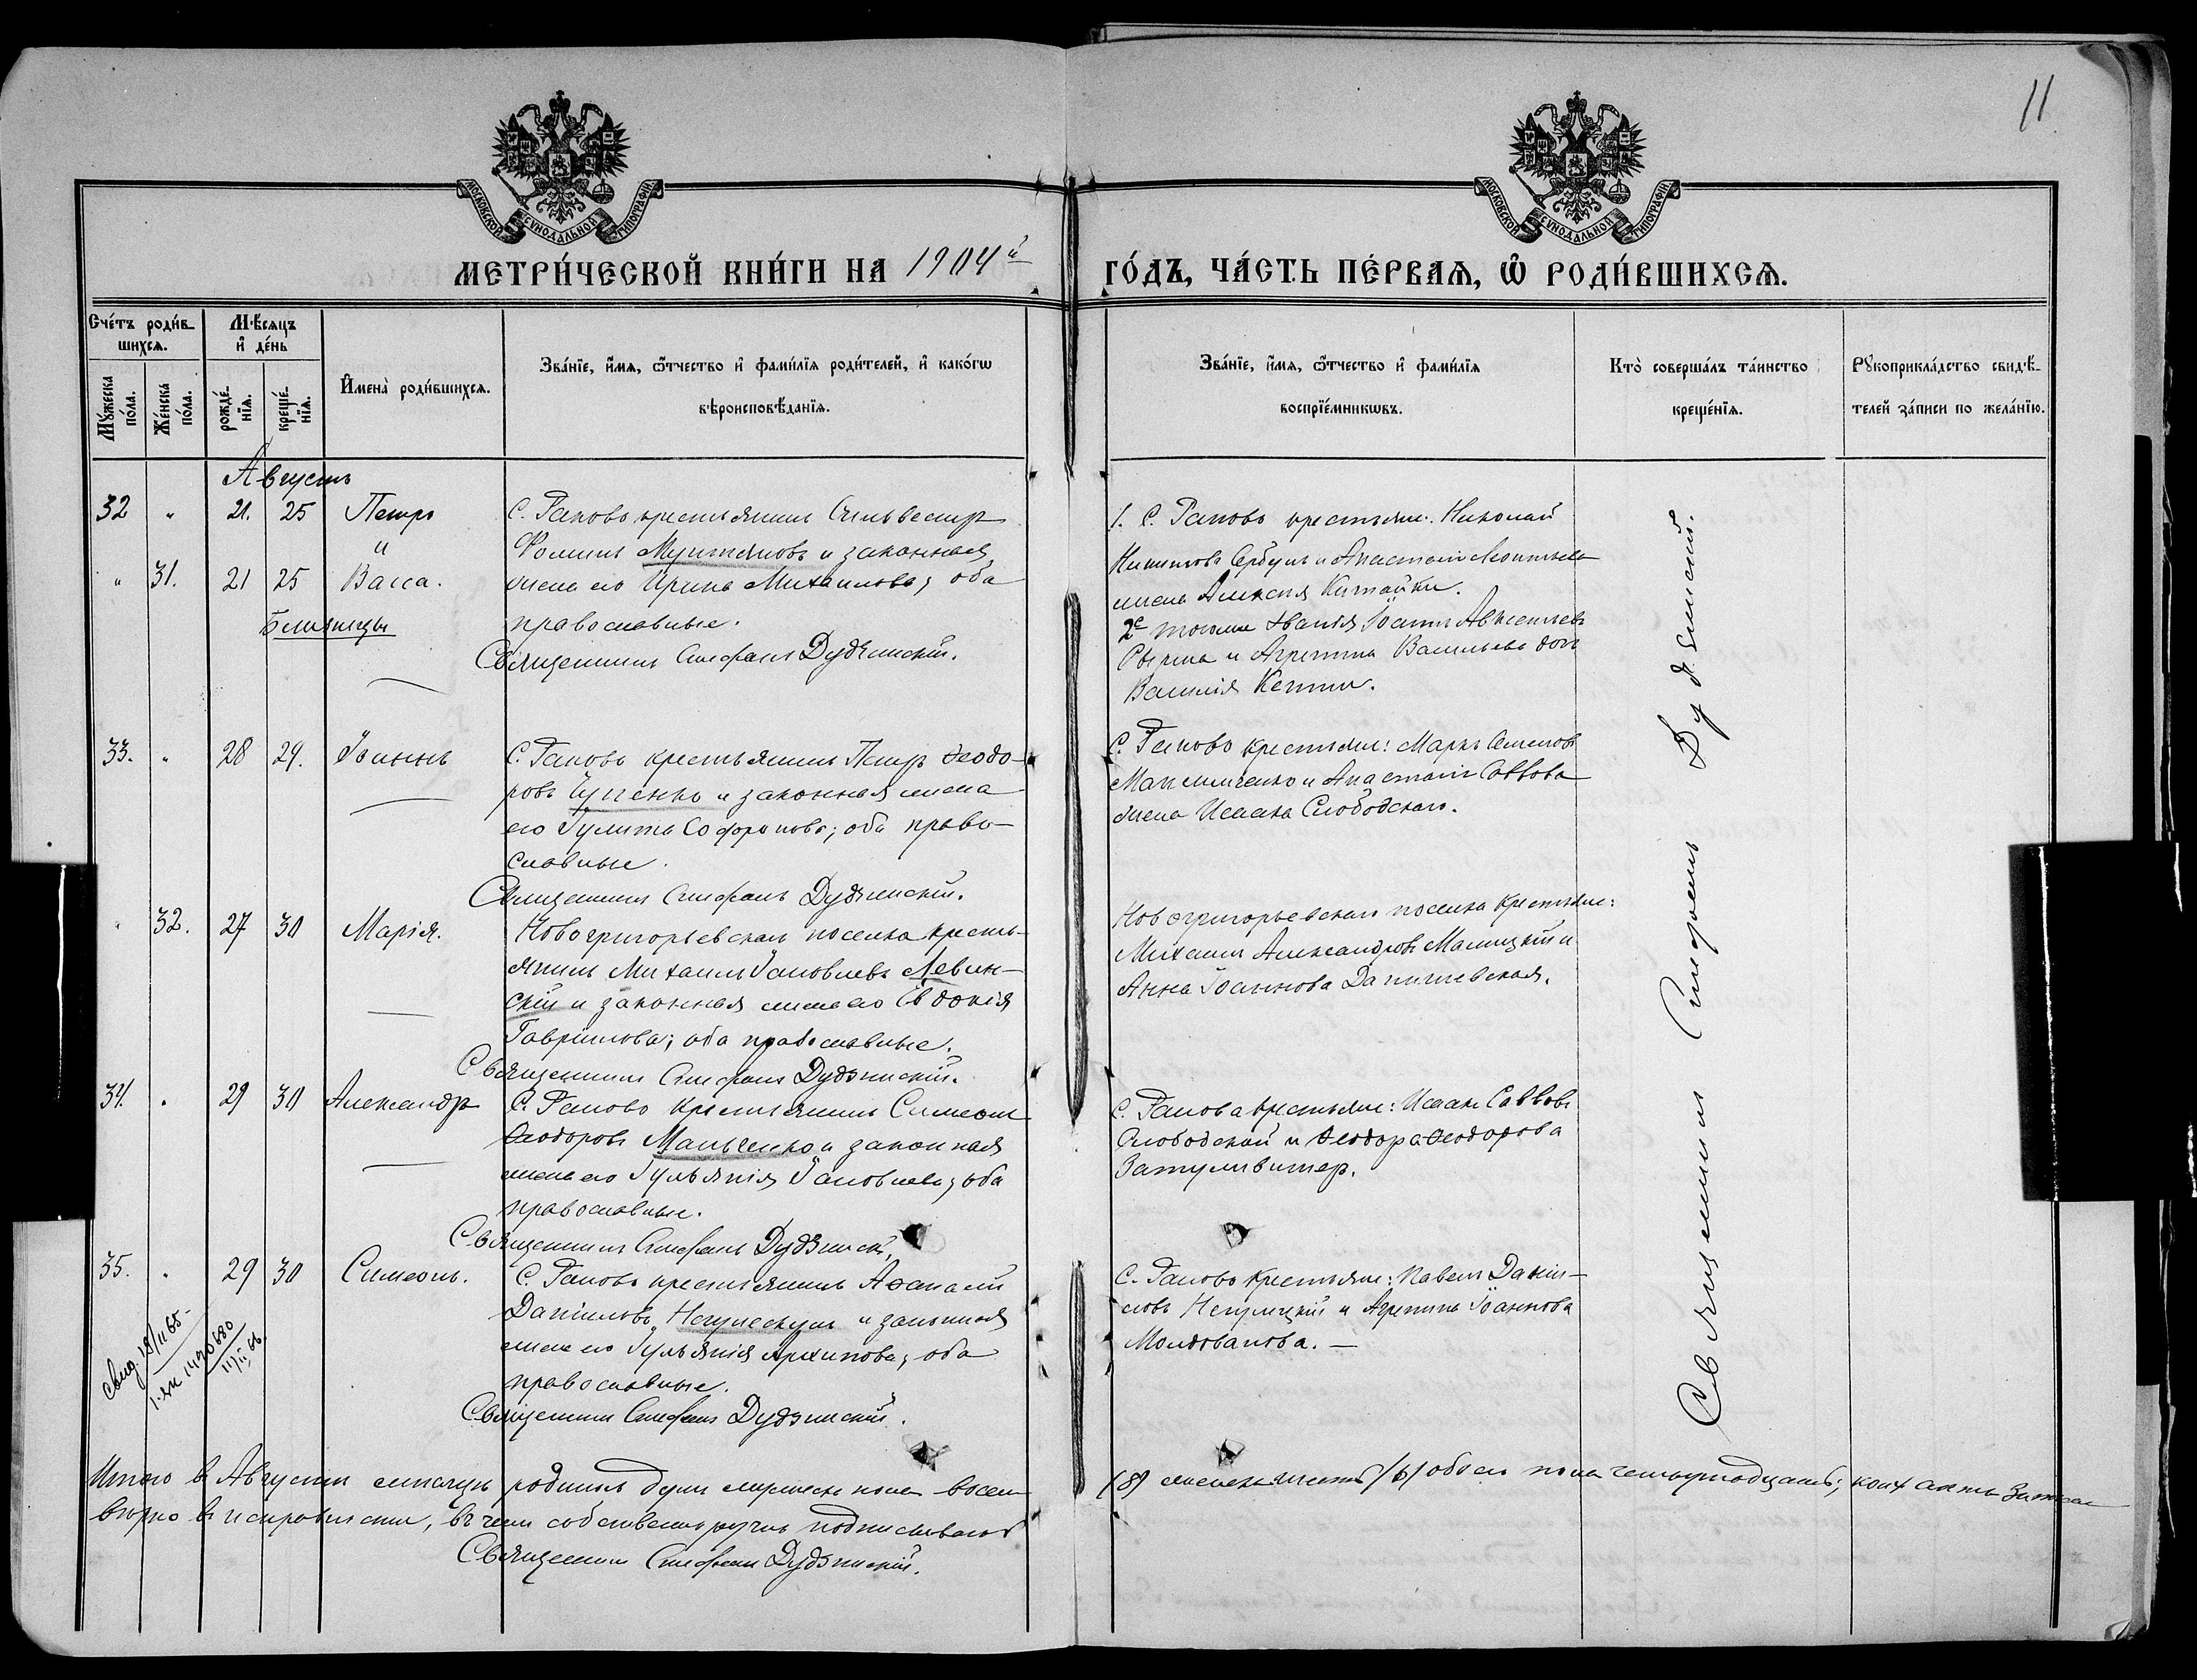 11
МОСКОВСКОЙ СѴНОДАЛЬНОЙ ТИПОГРАФІИ
МОСКОВСКОЙ СѴНОДАЛЬНОЙ ТИПОГРАФІИ
МЕТРИ́ЧЕСКОЙ КНИ́ГИ НА 1904й ГО́ДЪ, ЧА́СТЬ ПЕ́РВАѦ, Ѿ РОДИ́ВШИХСѦ.
Сче́тъ роди́в-
шихсѧ.
Мꙋ́жеска по́ла.
Же́нска по́ла.
Мѣ́сяцъ
и҆ де́нь
рожде́-
нїѧ.
креще́-
нїѧ.
И҆мена̀ роди́вшихсѧ.
Зва́нїе, и҆́мѧ, ѻ҆́тчество и҆ фами́лїѧ роди́телей, и҆ како́гѡ
вѣроисповѣ́данїѧ.
Зва́нїе, и҆́мѧ, ѻ҆́тчество и҆ фами́лїѧ
воспрїе́мникѡвъ.
Кто̀ соверша́лъ та́инство
креще́нїѧ.
Рꙋкоприкла́дство свидѣ́-
телей за́писи по жела́нїю.
Августъ
32 " 21. 25 Петръ
и
" 31. 21 25 Васса.
Близнецы
С. Ганово крестьянинъ Сильвестръ
Фоминъ Мунтяновъ и законная
жена его Ирина Михаилова; оба
православные.
Священникъ Стефанъ Дудзинскій.
1. С. Ганово крестьяне: Николай
Никитовъ Сербулъ и Анастасія Леонтьева
жена Алексія Китайки.
2е тогоже званія Іоаннъ Авксентьевъ
и Агрипина Васильева дочь
Василія
33. " 28 29. Іоаннъ
С. Ганово крестьянинъ Петръ Ѳеодо-
ровъ и законная жена
его Іулита Софронова; оба право-
славные.
Священникъ Стефанъ Дудзинскій.
С. Ганово крестьяне: Маркъ Семеновъ
и Анастасія Саввова
жена Исаака Слободскаго.
" 32. 27 30 Марія.
Новогригорьевскаго поселка кресть-
янинъ Михаилъ Іаковлевъ Левин-
скій и законная жена его Евдокія
Гавриилова; оба православные.
Священникъ Стефанъ Дудзинскій.
Новогригорьевскаго поселка крестьяне:
Михаилъ Александровъ Малицкій и
Анна Іоаннова Данишевская.
34. " 29 30 Александръ
С. Ганово крестьянинъ Симеонъ
Ѳеодоровъ Мальченко и законная
жена его Іуліанія Іаковлева; оба
православные.
Священникъ Стефанъ Дудзинскій.
С. Ганова крестьяне: Исаакъ Саввовъ
Слободской и Ѳеодора Ѳеодорова
Затуливитер.
35. " 29 30 Симеонъ.
С. Ганово крестьянинъ Аѳанасій
Даніиловъ и законная
жена его Іуліанія Архипова; оба
православные.
Священникъ Стефанъ Дудзинскій.
С. Ганово крестьяне: Павелъ Даніи-
ловъ и Агрипина Іоаннова
Молдованова. —
Священникъ Стефанъ Дудзинскій.
Итого въ Августѣ мѣсяцѣ родилось душъ мужеска пола восемь (8) женска шесть (6) обоего пола четырнадцать; коихъ акты записаны
вѣрно въ исправности, въ чемъ собственноручно подписываюсь
Священникъ Стефанъ Дудзинскій.